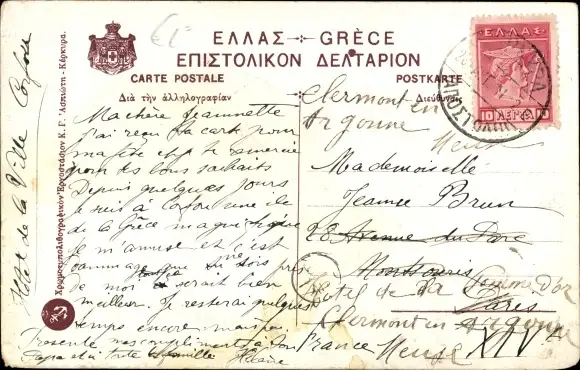 ΕΛΛΑΣ GRÈCE
ΕΠΙΣΤΟΛΙΚΟΝ ΔΕΛΤΑΡΙΟΝ
CARTE POSTALE
POSTKARTE
Διὰ τὴν ἀλληλογραφίαν
Διεύθυνσις
ΕΛΛΑΣ
10 ΛΕΠΤΑ
Ma chère Jeannette
J'ai reçu ta carte pour
ma fête et je te remercie
pour tes bons souhaits
Depuis quelques jours
je suis à Corfou une île
de la Grèce magnifique
Je m'amuse et c'est
dommage que tu ne sois
près de moi serait bien
meilleur. Je resterai quelques
temps encore mais pas
Présente mes compliments à ton
Papa et à toute la famille Hélène
Clermont en
Argonne
Meuse
Mademoiselle
Jeanne Brun
28 Avenue du Parc
Montsouris
Hotel de la Pomme d'or
Paris
Clermont en Argonne
France Meuse XIV
Hotel de la Ville Corfou
Χρωμοτυπολιθογραφικὸν Ἐργοστάσιον Κ. Γ. Ἀσπιώτη - Κέρκυρα.